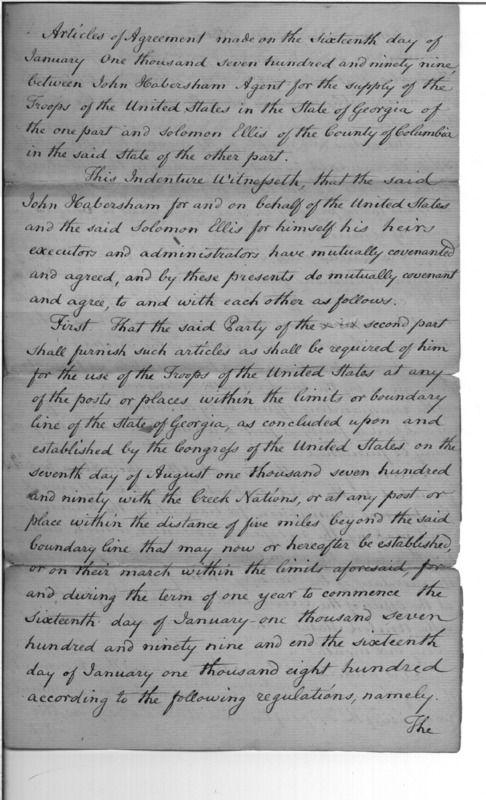 Articles of Agreement made on the Sixteenth day of
January One thousand seven hundred and ninety nine,
between John Habersham Agent for the supply of the
Troops of the United States in the State of Georgia of
the one part and Solomon Ellis of the County of Columbia
in the said State of the other part.
This Indenture Witnesseth, that the said
John Habersham for and on behalf of the United States
and the said Solomon Ellis for himself his heirs
executors and administrators have mutually covenanted
and agreed, and by these presents do mutually covenant
and agree, to and with each other as follows.
First That the said Party of the second part
shall furnish such articles as shall be required of him
for the use of the Troops of the United States at any
of the posts or places within the limits or boundary
line of the State of Georgia, as concluded upon and
established by the Congress of the United States on the
seventh day of August one thousand seven hundred
and ninety with the Creek Nations, or at any post or
place within the distance of five miles beyond the said
boundary line that may now or hereafter be established
or on their march within the limits aforesaid, for
and during the term of one year to commence the
Sixteenth day of January one thousand seven
hundred and ninety nine and end the sixteenth
day of January one thousand eight hundred
according to the following regulations, namely.
The